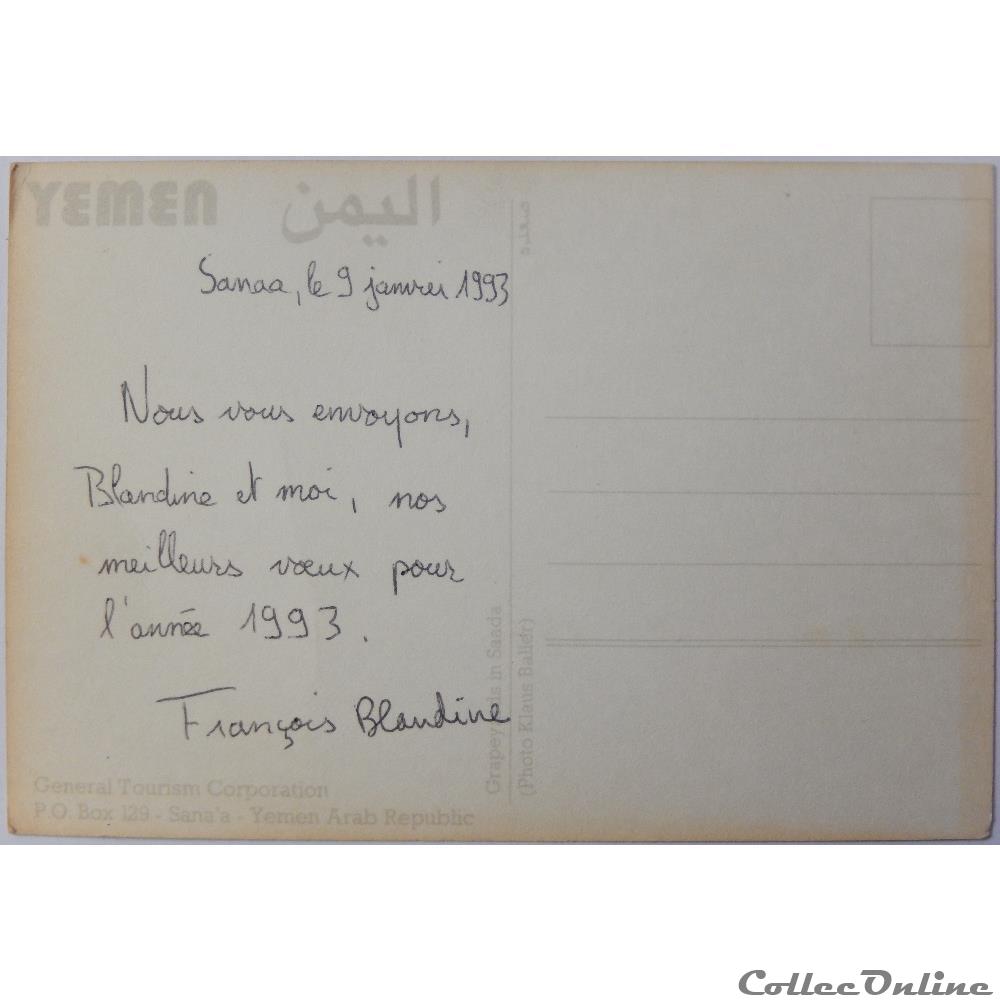 YEMEN اليمن
صعده
Sanaa, le 9 janvier 1993
Nous vous envoyons,
Blandine et moi, nos
meilleurs vœux pour
l'année 1993.
François Blandine
General Tourism Corporation
P.O. Box 129 - Sana'a - Yemen Arab Republic
Grapeyards in Saada
(Photo Klaus Balidr)
CollecOnline